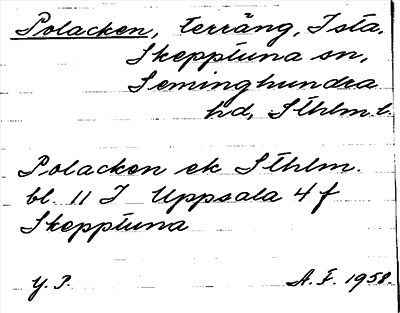 Polacken, terräng, Ista,
Skepptuna sn,
Seminghundra
hd, Sthlm l.
Polacken ek Sthlm.
bl. 11 I Uppsala 4 f
Skepptuna
Y. P. A. F. 1958.